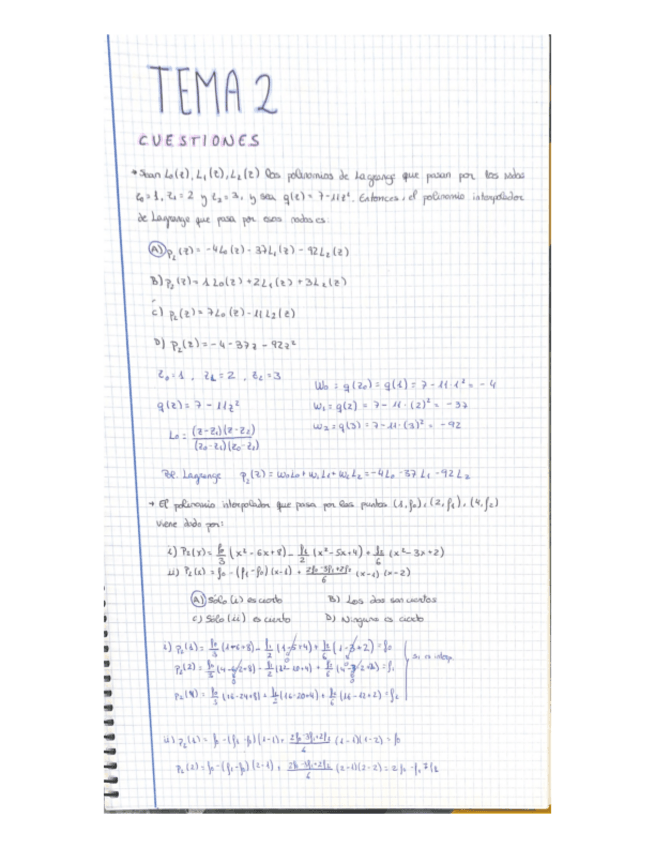 TEMA 2
CUESTIONES
→ Sean L₀(z), L₁(z), L₂(z) los polinomios de Lagrange que pasan por los nodos
z₀=1, z₁=2 y z₂=3, y sea q(z) = 7-11z². Entonces, el polinomio interpolador
de Lagrange que pasa por esos nodos es
A) p₂(z) = -4L₀(z) - 37L₁(z) - 92L₂(z)
B) p₂(z) = 1L₀(z) + 2L₁(z) + 3L₂(z)
C) p₂(z) = 7L₀(z) - 11L₂(z)
D) p₂(z) = -4 - 37z - 92z²
z₀=1, z₁=2, z₂=3
W₀ = q(z₀) = q(1) = 7 - 11·1² = -4
q(z) = 7 - 11z²
W₁ = q(2) = 7 - 11·(2)² = -37
W₂ = q(3) = 7 - 11·(3)² = -92
L₀ = (z-z₁)(z-z₂) / (z₀-z₁)(z₀-z₂)
Pol. Lagrange p₂(z) = W₀L₀ + W₁L₁ + W₂L₂ = -4L₀ - 37L₁ - 92L₂
→ El polinomio interpolador que pasa por los puntos (1,f₀), (2,f₁), (4,f₂)
viene dado por:
i) P₂(x) = f₀/3 (x² - 6x + 8) - f₁/2 (x² - 5x + 4) + f₂/6 (x² - 3x + 2)
ii) P₂(x) = f₀ - (f₁ - f₀)(x-1) + 2f₀-3f₁+2f₂/6 (x-1)(x-2)
A) Sólo (i) es cierto B) Los dos son ciertos
C) Sólo (ii) es cierto D) Ninguno es cierto
i) P₂(1) = f₀/3 (1-6+8) - f₁/2 (1-5+4) + f₂/6 (1-3+2) = f₀
P₂(2) = f₀/3 (4-12+8) - f₁/2 (4-10+4) + f₂/6 (4-6+2) = f₁
P₂(4) = f₀/3 (16-24+8) + f₁/2 (16-20+4) + f₂/6 (16-12+2) = f₂
ii) P₂(1) = f₀ - (f₁-f₀)(1-1) + 2f₀-3f₁+2f₂/6 (1-1)(1-2) = f₀
P₂(2) = f₀ - (f₁-f₀)(2-1) + 2f₀-3f₁+2f₂/6 (2-1)(2-2) = 2f₀ - f₁ ≠ f₁